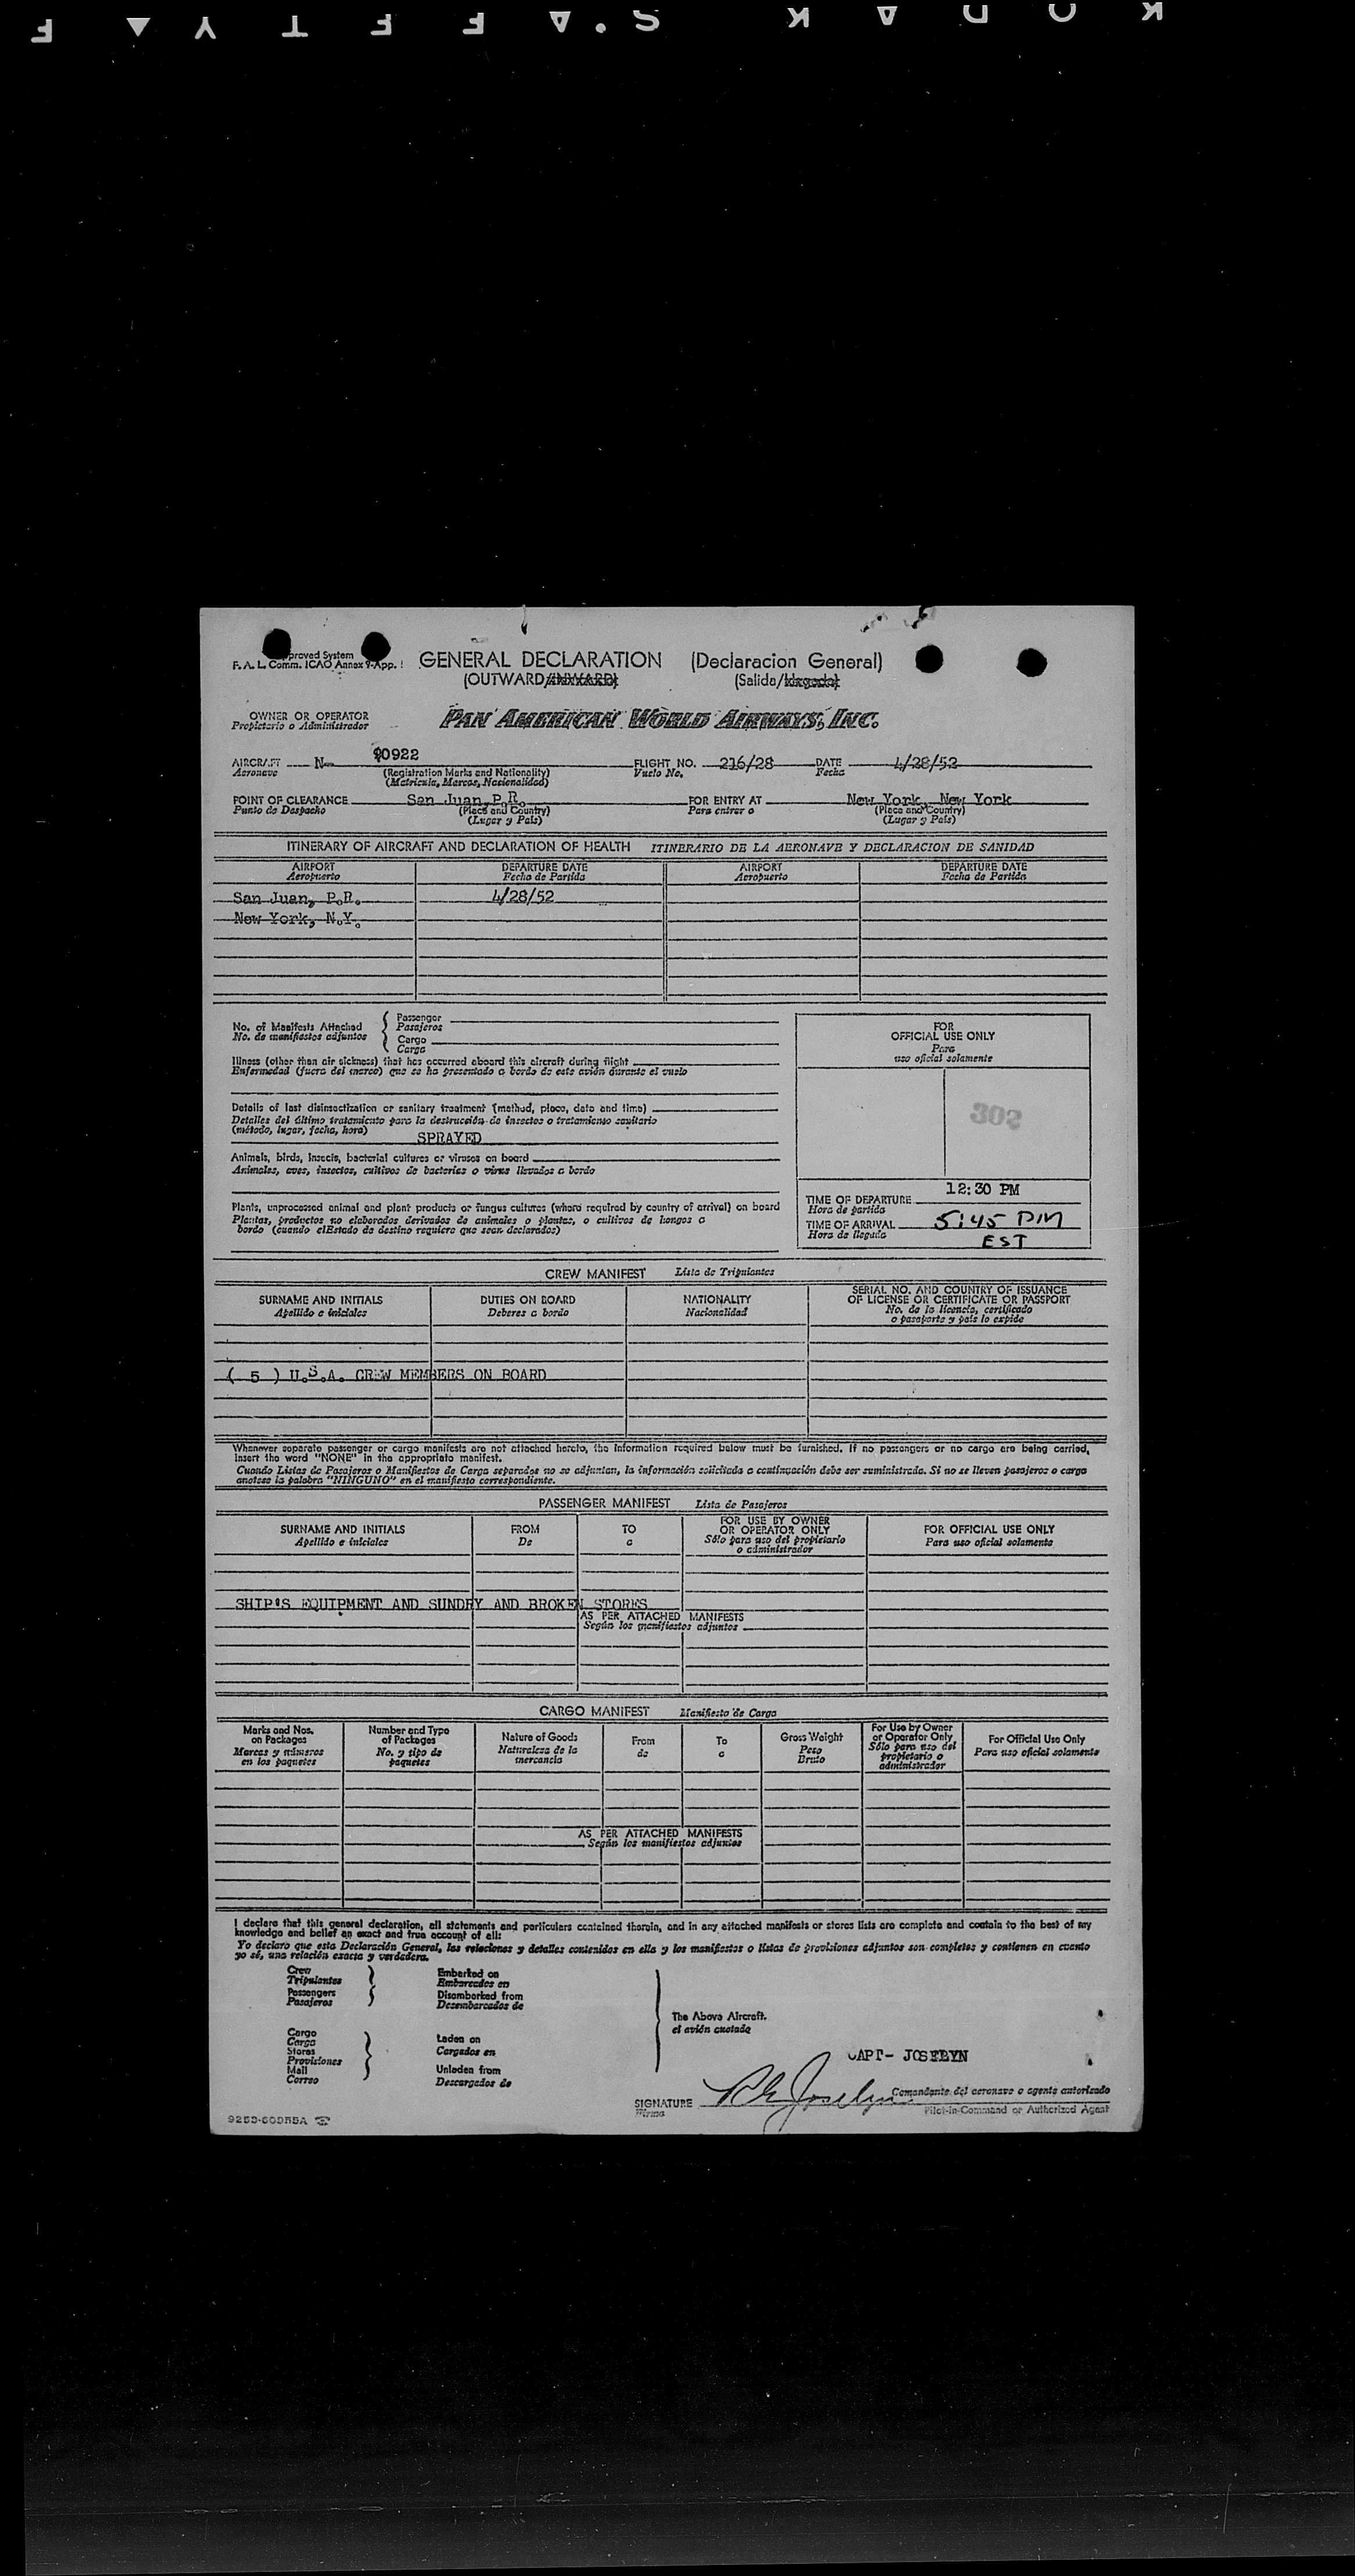 KODAK S.A F E T Y A F
Approved System
F. A. L. Comm. ICAO Annex 9-App. 1
GENERAL DECLARATION (Declaracion General)
(OUTWARD/INWARD) (Salida/Llegada)
OWNER OR OPERATOR
Propietario o Administrador
PAN AMERICAN WORLD AIRWAYS, INC.
AIRCRAFT N- 90922 FLIGHT NO. 216/28 DATE 4/28/52
Aeronave (Registration Marks and Nationality) Vuelo No. Fecha
(Matricula, Marcas, Nacionalidad)
POINT OF CLEARANCE San Juan, P.R. FOR ENTRY AT New York, New York
Punto de Despacho (Place and Country) Para entrar a (Place and Country)
(Lugar y Pais) (Lugar y Pais)
ITINERARY OF AIRCRAFT AND DECLARATION OF HEALTH ITINERARIO DE LA AERONAVE Y DECLARACION DE SANIDAD
AIRPORT DEPARTURE DATE AIRPORT DEPARTURE DATE
Aeropuerto Fecha de Partida Aeropuerto Fecha de Partida
San Juan, P.R. 4/28/52
New York, N.Y.
No. of Manifests Attached
No. de manifiestos adjuntos
Passenger
Pasajeros
Cargo
Carga
Illness (other than air sickness) that has occurred aboard this aircraft during flight
Enfermedad (fuera del mareo) que se ha presentado a bordo de este avión durante el vuelo
Details of last disinsectization or sanitary treatment (method, place, date and time)
Detalles del último tratamiento para la destrucción de insectos o tratamiento sanitario
(método, lugar, fecha, hora)
SPRAYED
Animals, birds, insects, bacterial cultures or viruses on board
Animales, aves, insectos, cultivos de bacterias o virus llevados a bordo
Plants, unprocessed animal and plant products or fungus cultures (where required by country of arrival) on board
Plantas, productos no elaborados derivados de animales o plantas, o cultivos de hongos a
bordo (cuando elEstado de destino requiere que sean declarados)
FOR
OFFICIAL USE ONLY
Para
uso oficial solamente
302
12:30 PM
TIME OF DEPARTURE
Hora de partida
TIME OF ARRIVAL 5:45 PM
Hora de llegada EST
CREW MANIFEST Lista de Tripulantes
SURNAME AND INITIALS DUTIES ON BOARD NATIONALITY SERIAL NO. AND COUNTRY OF ISSUANCE
OF LICENSE OR CERTIFICATE OR PASSPORT
Apellido e iniciales Deberes a bordo Nacionalidad No. de la licencia, certificado
o pasaporte y país lo expide
( 5 ) U.S.A. CREW MEMBERS ON BOARD
Whenever separate passenger or cargo manifests are not attached hereto, the information required below must be furnished. If no passengers or no cargo are being carried,
insert the word "NONE" in the appropriate manifest.
Cuando Listas de Pasajeros o Manifiestos de Carga separados no se adjuntan, la información solicitada a continuación debe ser suministrada. Si no se lleven pasajeros o carga
anotese la palabra "NINGUNO" en el manifiesto correspondiente.
PASSENGER MANIFEST Lista de Pasajeros
SURNAME AND INITIALS FROM TO FOR USE BY OWNER
OR OPERATOR ONLY FOR OFFICIAL USE ONLY
Apellido e iniciales De a Sólo para uso del propietario
o administrador Para uso oficial solamente
SHIP'S EQUIPMENT AND SUNDRY AND BROKEN STORES
AS PER ATTACHED MANIFESTS
Según los manifiestos adjuntos
CARGO MANIFEST Manifiesto de Carga
Marks and Nos.
on Packages
Marcas y números
en los paquetes
Number and Type
of Packages
No. y tipo de
paquetes
Nature of Goods
Naturaleza de la
mercancia
From
de
To
a
Gross Weight
Peso
Bruto
For Use by Owner
or Operator Only
Sólo para uso del
propietario o
administrador
For Official Use Only
Para uso oficial solamente
AS PER ATTACHED MANIFESTS
Según los manifiestos adjuntos
I declare that this general declaration, all statements and particulars contained therein, and in any attached manifests or stores lists are complete and contain to the best of my
knowledge and belief an exact and true account of all:
Yo declaro que esta Declaración General, las relaciones y detalles contenidos en ella y los manifiestos o listas de provisiones adjuntos son completos y contienen en cuanto
yo sé, una relación exacta y verdadera.
Crew
Tripulantes
Passengers
Pasajeros
Embarked on
Embarcados en
Disembarked from
Desembarcados de
Cargo
Carga
Stores
Provisiones
Mail
Correo
Laden on
Cargados en
Unladen from
Descargados de
The Above Aircraft.
el avión cuotado
CAPT- JOSELYN
SIGNATURE
Firma
Comandante del aeronave o agente autorizado
Pilot-in-Command or Authorized Agent